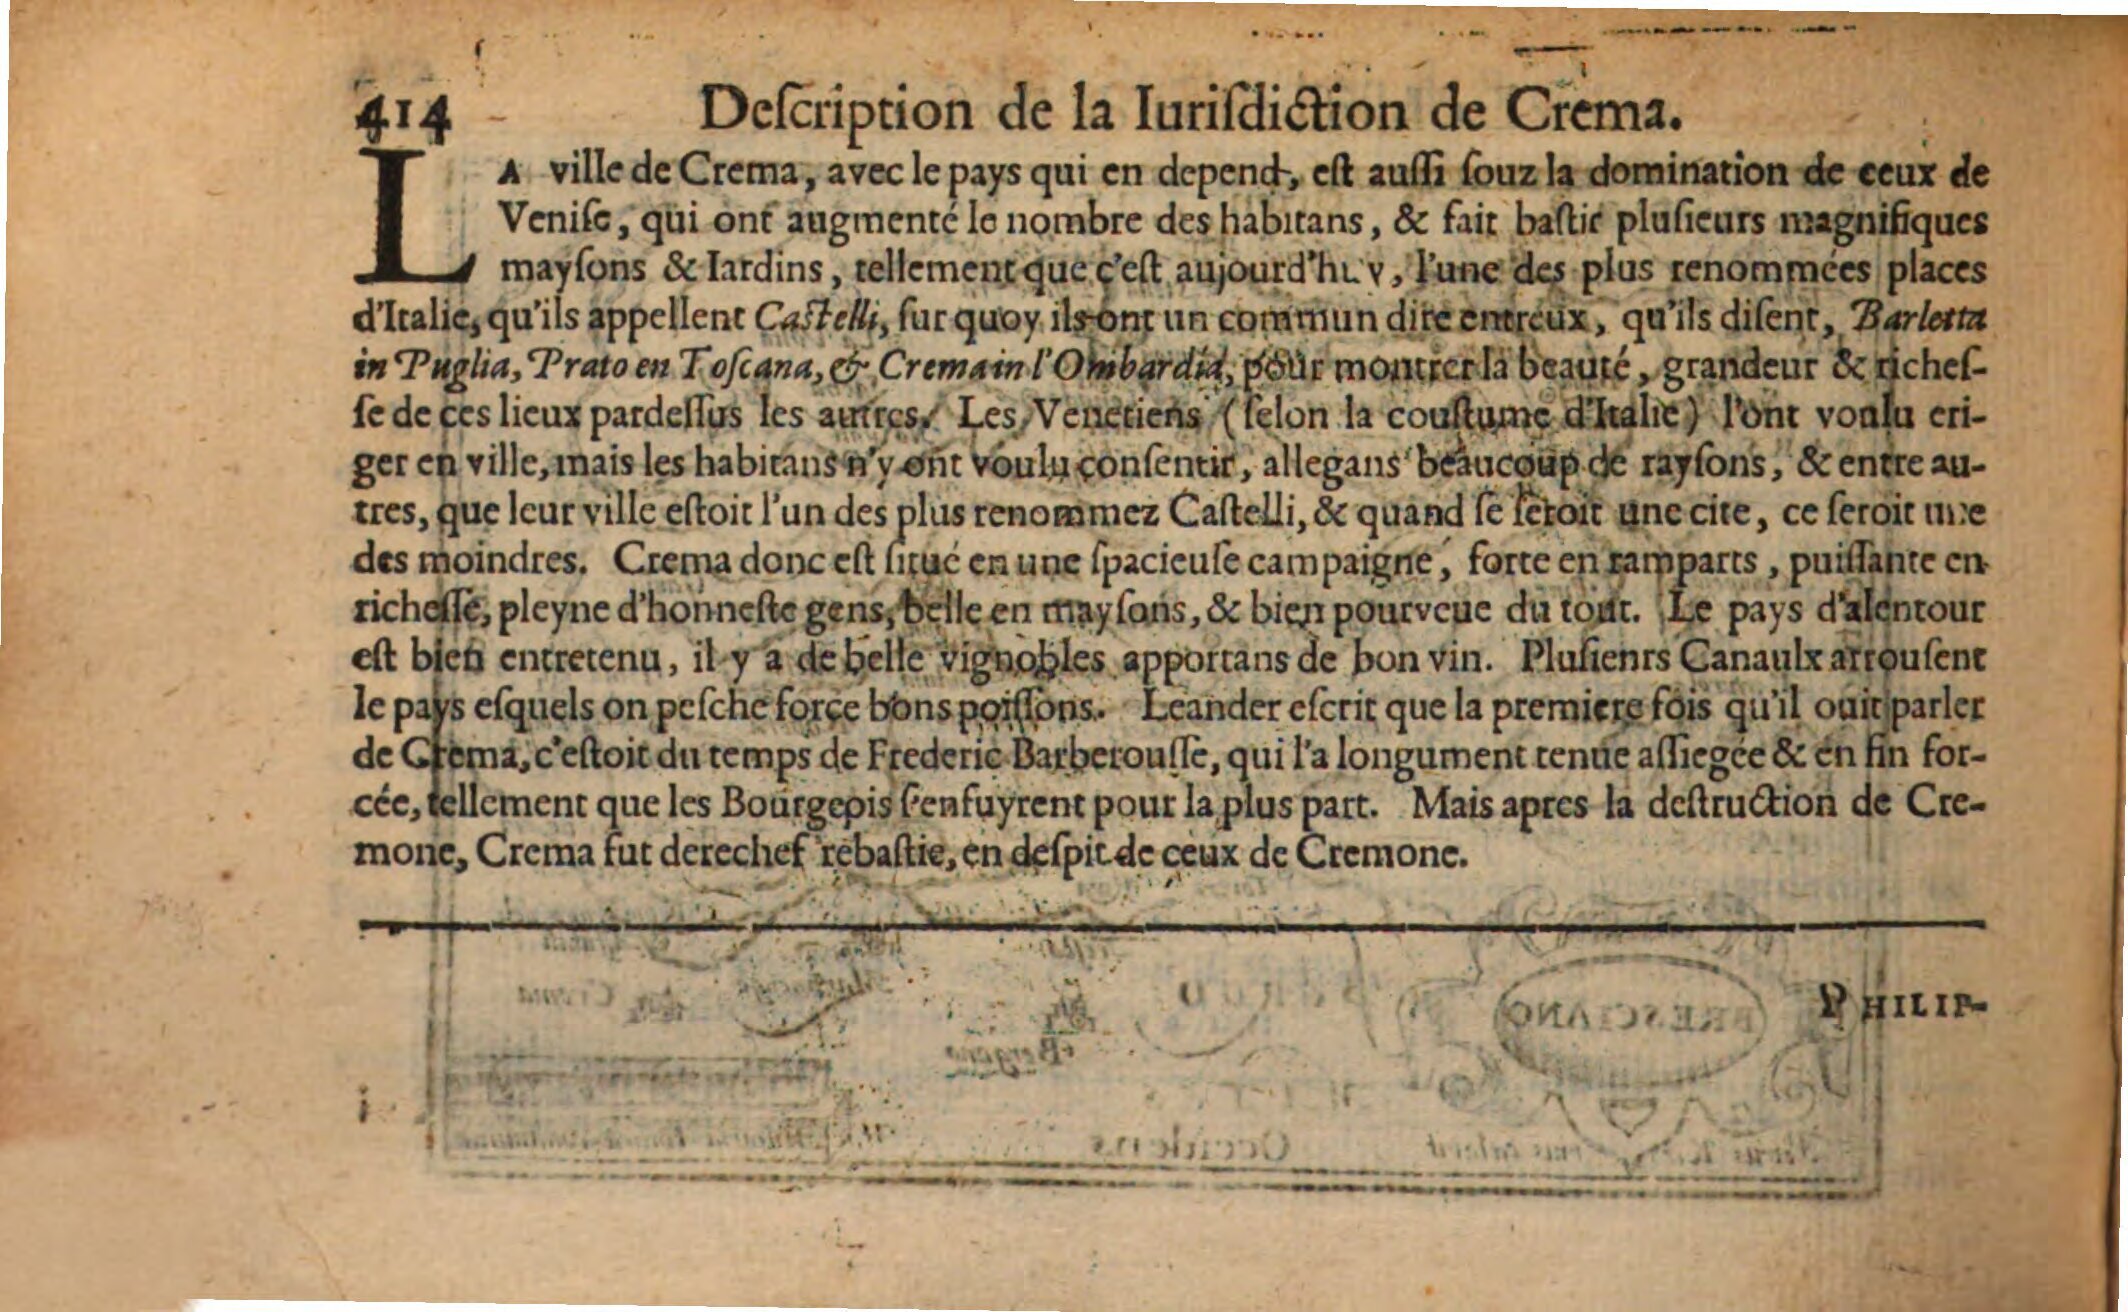 414 Deſcription de la Iuriſdiction de Crema.
LA ville de Crema, avec le pays qui en depend, eſt auſſi ſouz la domination de ceux de
Veniſe, qui ont augmenté le nombre des habitans, & fait baſtir pluſieurs magnifiques
mayſons & Iardins, tellement que c'eſt aujourd'huy, l'une des plus renommées places
d'Italie, qu'ils appellent Caſtelli, ſur quoy ils ont un commun dire entreux, qu'ils diſent, Barletta
in Puglia, Prato en Toſcana, & Crema in l'Ombardia, pour montrer la beauté, grandeur & richeſ-
ſe de ces lieux pardeſſus les autres. Les Venetiens (ſelon la couſtume d'Italie) l'ont voulu eri-
ger en ville, mais les habitans n'y ont voulu conſentir, allegans beaucoup de rayſons, & entre au-
tres, que leur ville eſtoit l'un des plus renommez Caſtelli, & quand ſe ſeroit une cite, ce ſeroit une
des moindres. Crema donc eſt ſitué en une ſpacieuſe campaigne, forte en ramparts, puiſſante en
richeſſe, pleyne d'honneſte gens, belle en mayſons, & bien pourveue du tout. Le pays d'alentour
eſt bien entretenu, il y a de belle vignobles apportans de bon vin. Pluſienrs Canaulx arrouſent
le pays eſquels on peſche force bons poiſſons. Leander eſcrit que la premiere fois qu'il ouit parler
de Crema, c'eſtoit du temps de Frederic Barberouſſe, qui l'a longument tenue aſſiegée & en fin for-
cée, tellement que les Bourgeois ſ'enfuyrent pour la plus part. Mais apres la deſtruction de Cre-
mone, Crema fut derechef rebaſtie, en deſpit de ceux de Cremone.
PHILIP-